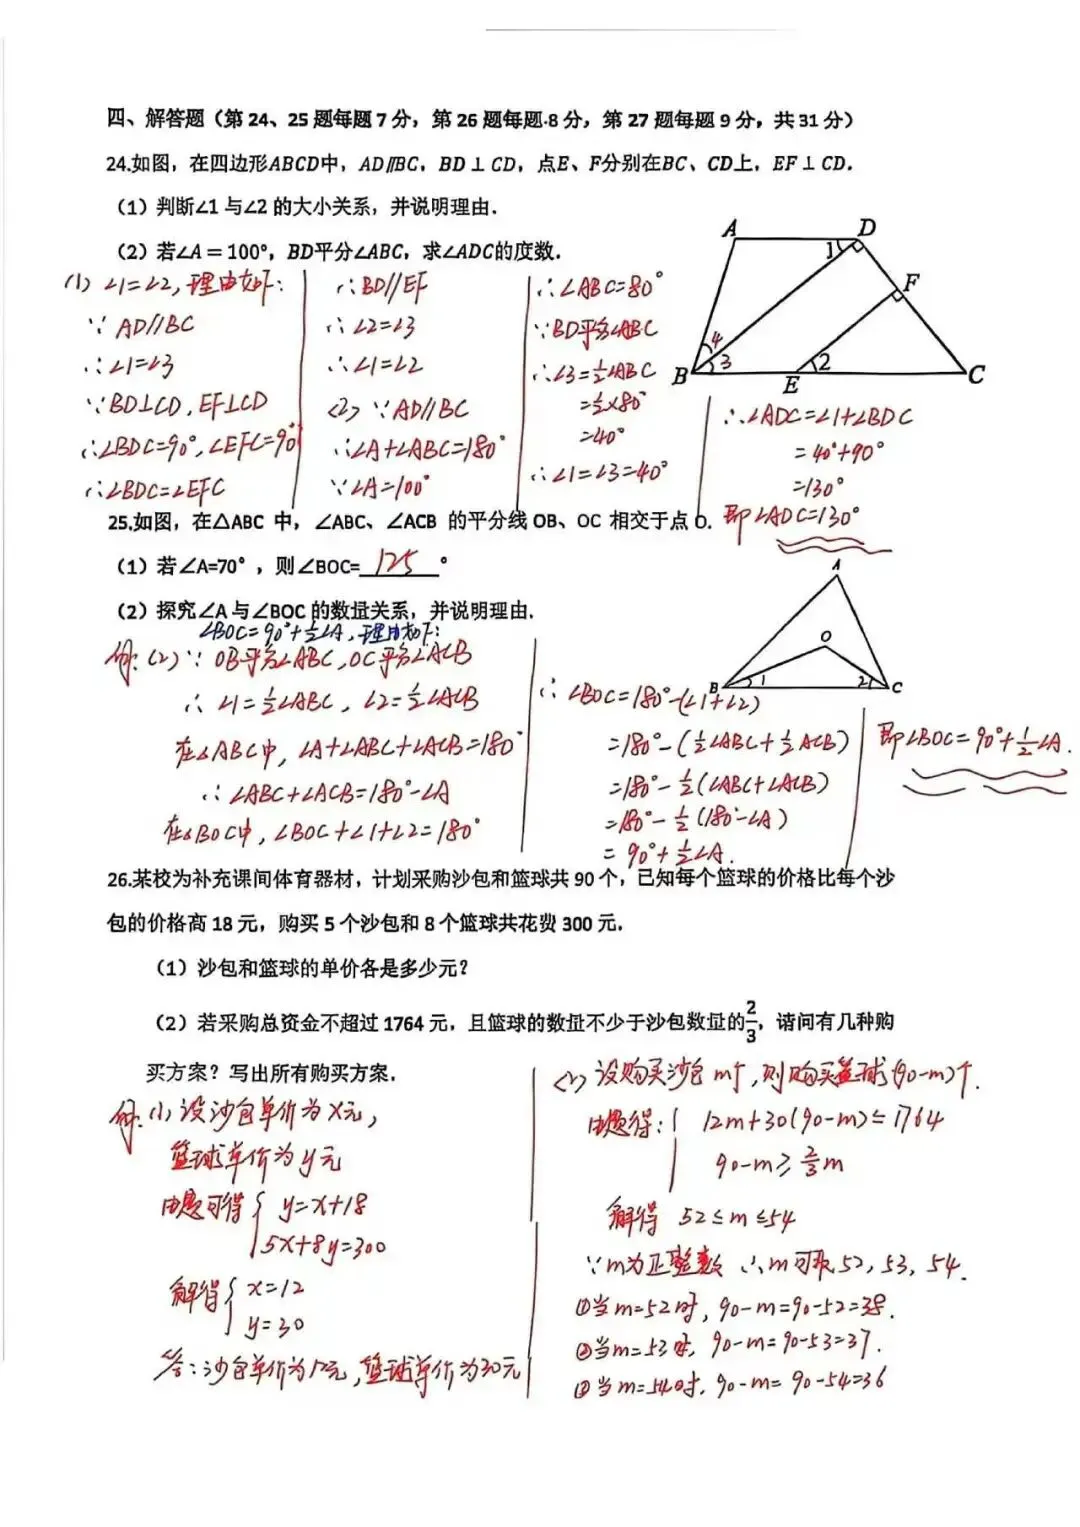 四、解答题（第 24、25 题每题 7 分，第 26 题每题 8 分，第 27 题每题 9 分，共 31 分）
24.如图，在四边形ABCD中，AD∥BC，BD⊥CD，点E、F分别在BC、CD上，EF⊥CD.
（1）判断∠1 与∠2 的大小关系，并说明理由.
（2）若∠A＝100°，BD平分∠ABC，求∠ADC的度数.
A D
1
F
4
B 3 E 2 C
(1) ∠1=∠2,理由如下:
∵ AD//BC
∴∠1=∠3
∵BD⊥CD,EF⊥CD
∴∠BDC=90°,∠EFC=90°
∴∠BDC=∠EFC
∴BD//EF
∴∠2=∠3
∴∠1=∠2
(2) ∵AD//BC
∴∠A+∠ABC=180°
∵∠A=100°
∴∠ABC=80°
∵BD平分∠ABC
∴∠3=½∠ABC
=½×80°
=40°
∴∠1=∠3=40°
∴∠ADC=∠1+∠BDC
=40°+90°
=130°
即∠ADC=130°
25.如图，在△ABC 中，∠ABC、∠ACB 的平分线 OB、OC 相交于点 O.
（1）若∠A=70°，则∠BOC= 125 °
（2）探究∠A 与∠BOC 的数量关系，并说明理由.
A
O
B 1 2 C
∠BOC=90°+½∠A,理由如下:
解:(2)∵ OB平分∠ABC,OC平分∠ACB
∴ ∠1=½∠ABC, ∠2=½∠ACB
在△ABC中, ∠A+∠ABC+∠ACB=180°
∴∠ABC+∠ACB=180°-∠A
在△BOC中,∠BOC+∠1+∠2=180°
∴ ∠BOC=180°-(∠1+∠2)
=180°-(½∠ABC+½ACB)
=180°-½(∠ABC+∠ACB)
=180°-½(180°-∠A)
= 90°+½∠A.
即∠BOC=90°+½∠A.
26.某校为补充课间体育器材，计划采购沙包和篮球共 90 个，已知每个篮球的价格比每个沙
包的价格高 18 元，购买 5 个沙包和 8 个篮球共花费 300 元.
（1）沙包和篮球的单价各是多少元？
（2）若采购总资金不超过 1764 元，且篮球的数量不少于沙包数量的2/3，请问有几种购
买方案？写出所有购买方案.
解:(1)设沙包单价为x元,
篮球单价为y元
由题可得{ y=x+18
5x+8y=300
解得{ x=12
y=30
答:沙包单价为12元,篮球单价为30元
(2)设购买沙包 m个,则购买篮球(90-m)个.
由题得:{ 12m+30(90-m)≤1764
90-m≥⅔m
解得 52≤m≤54
∵m为正整数 ∴m可取52,53,54.
①当m=52时,90-m=90-52=38.
②当m=53时,90-m=90-53=37.
③当m=54时,90-m=90-54=36